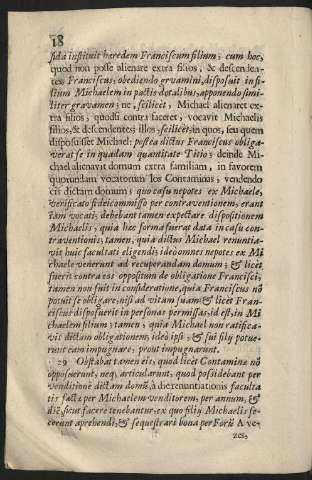 18
sida instituit heredem Franciscum filium; cum hoc,
quod non posse alienare extra filios, & descenden-
tes Franciscus, obediendo gravamini, disposuit in fi-
lium Michaelem in pactis dotalibus, apponendo simi-
liter gravamen; ne, scilicet, Michael alienaret ex-
tra filios; quodsi contra faceret; vocavit Michaelis
filios, & descendentes illos, scilicet, in quos, seu quem
disposuisset Michael: postea dictus Franciscus obliga-
verat se in quadam quantitate Titio; deinde Mi-
chael alienavit domum extra familiam, in favorem
quorundam vocatorum los Contaminas; vendendo
eis dictam domum; quo casu nepotes ex Michaele,
verificato fideicommisso per contraventionem, erant
iam vocati; debebant tamen expectare dispositionem
Michaelis; quia hæc forma fuerat data in casu con-
traventionis; tamen, quia dictus Michael renuntia-
vit huic facultati eligendi; ideo omnes nepotes ex Mi-
chaele venerunt ad recuperandam domum; & licèt
fuerit contra eos oppositum de obligatione Francisci;
tamen non fuit in consideratione, quia Franciscus nō
potuit se obligare, nisi ad vitam suam; & licèt Fran-
ciscus disposuerit in personas permissas, id est, in Mi-
chaelem filium; tamen, quia Michael non ratifica-
vit dictam obligationem, ideo ipsi, & sui filij potue-
runt eam impugnare; prout impugnarunt.
29 Obstabat tamen eis, quod licèt Contamina nō
opposuerunt, neq; articularunt, quod possidebant per
venditionē dictam domū, à die renuntiationis faculta
tis factæ per Michaelem venditorem, per annum, &
diē, sicut facere tenebantur, ex quo filij Michaelis fe-
cerunt aprehendi, & sequestrari bona per Forū A ve-
ces,